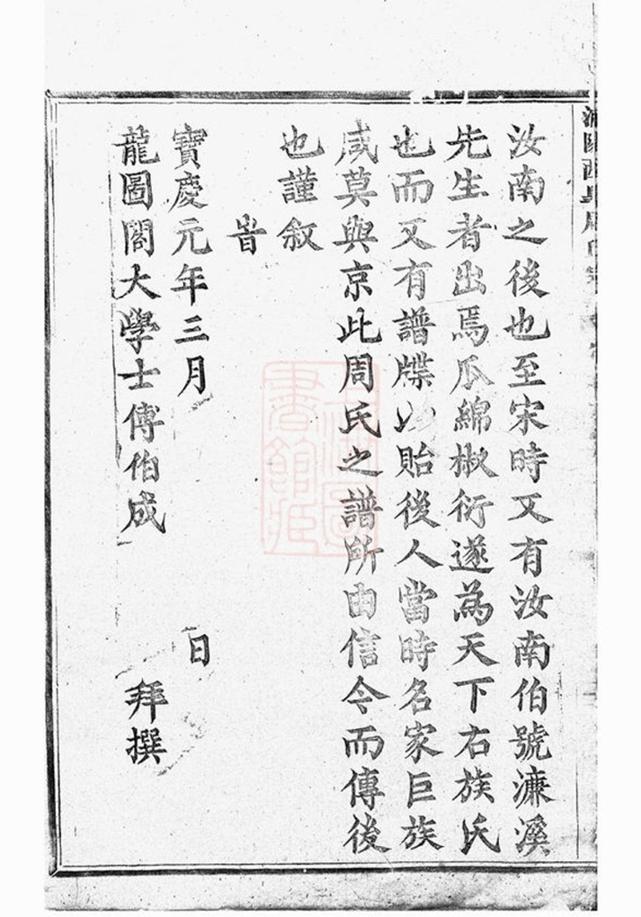 汝南之後也至宋時又有汝南伯號濂溪
先生者出焉瓜綿椒衍遂為天下右族氏
也而又有譜牒以貽後人當時名家巨族
咸莫與京此周氏之譜所由信今而傳後
也謹敘
旹
寶慶元年三月 日
龍圖閣大學士傅伯成 拜撰